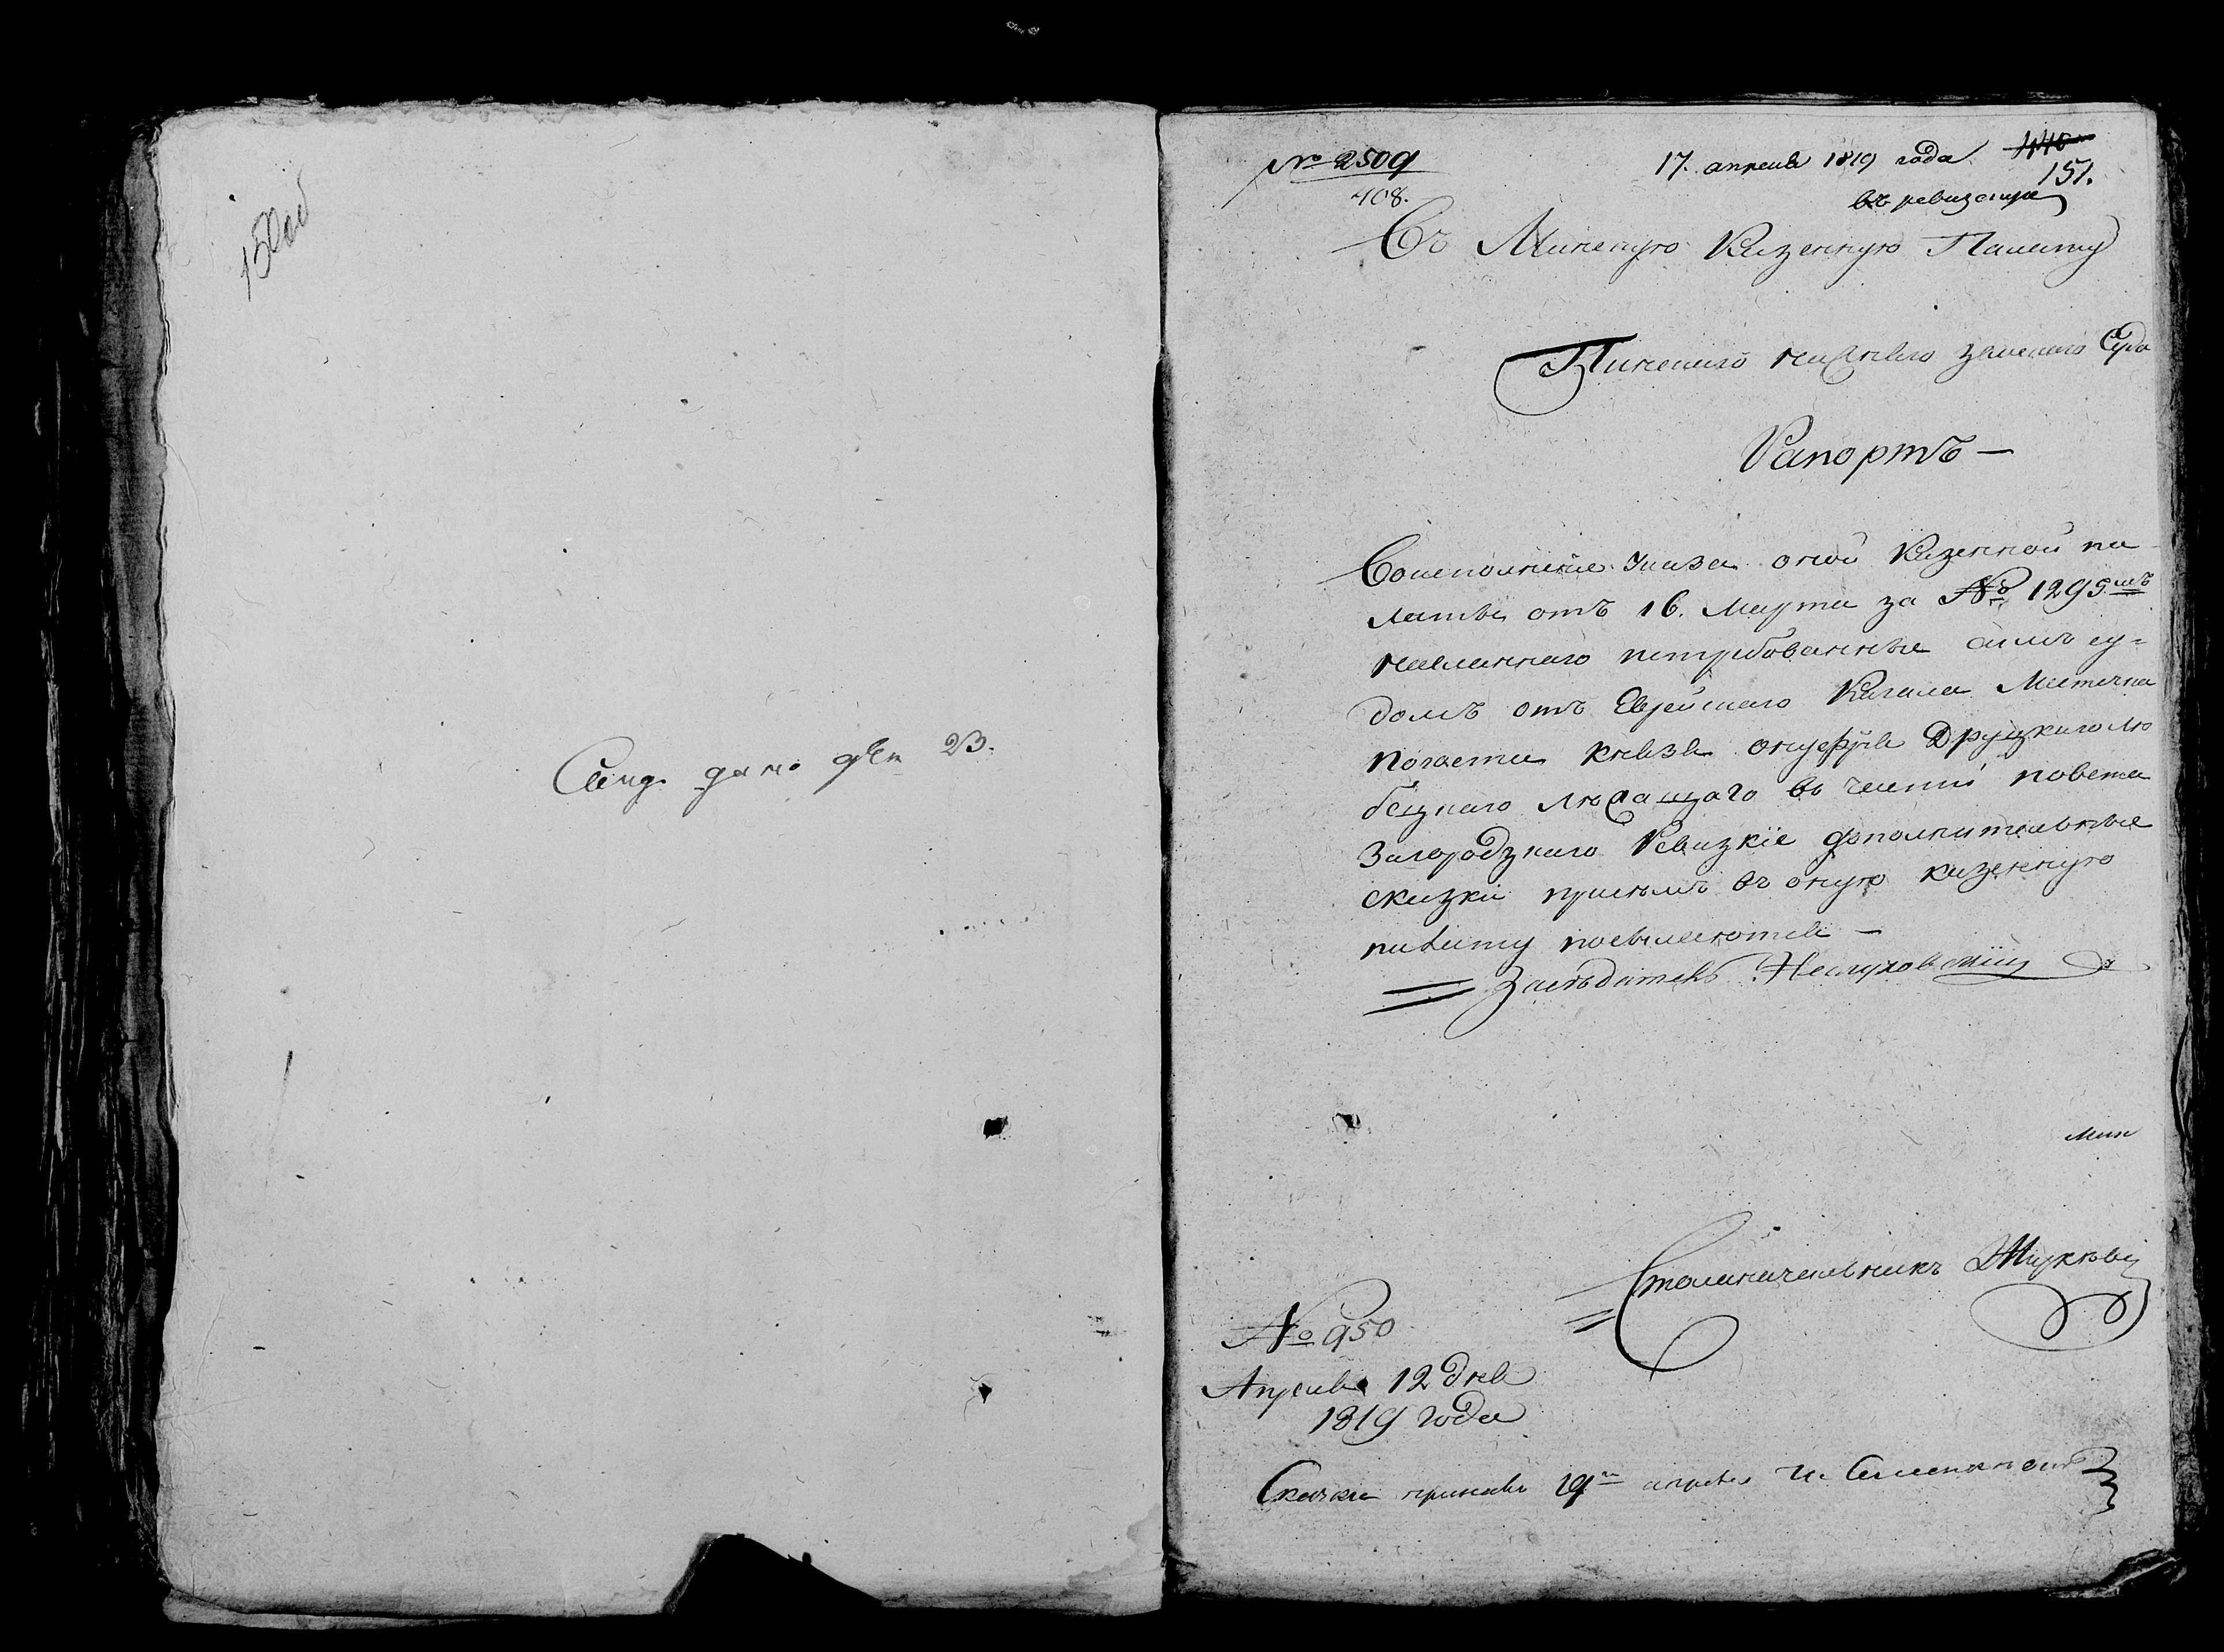 150об
дано 23.
№ 2509
408.
17. апреля 1819 года
446
151.
въ ревизскую
Въ Минскую Казенную Палату
Пинскаго нижняго земскаго Суда
Рапортъ —
Воисполнение указа оной Казенной па
латы отъ 16. Марта за № 1295мъ
истребованные симъ су=
домъ отъ Еврейскаго Кагала Местечка
Погоста князя онуфрия Друцкаго лю
бецкаго лежащаго въ части повета
Загородзкаго Ревизкіе дополнительные
сказки присемъ въ оную казенную
палату посылаются —
Заседатель
Мин
Столоначальникъ
№ 950
Апреля 12 дня
1819 года
Сказки принялъ 19го апреля